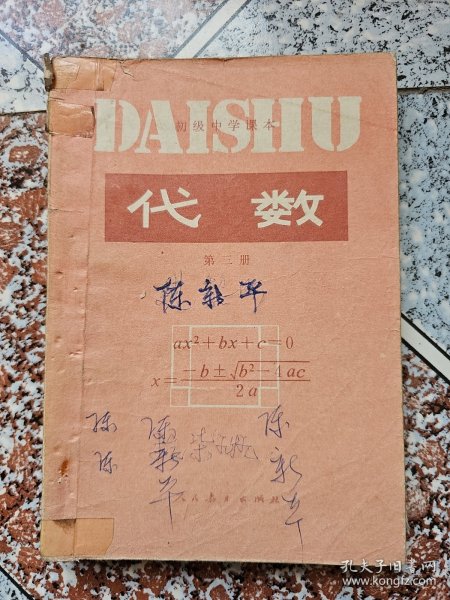 DAISHU
初级中学课本
代数
第三册
陈新平
ax²+bx+c=0
x=\frac{-b±\sqrt{b²-4ac}}{2a}
陈
陈
陈新平
陈新平
人民教育出版社
孔夫子旧书网
www.kongfz.com